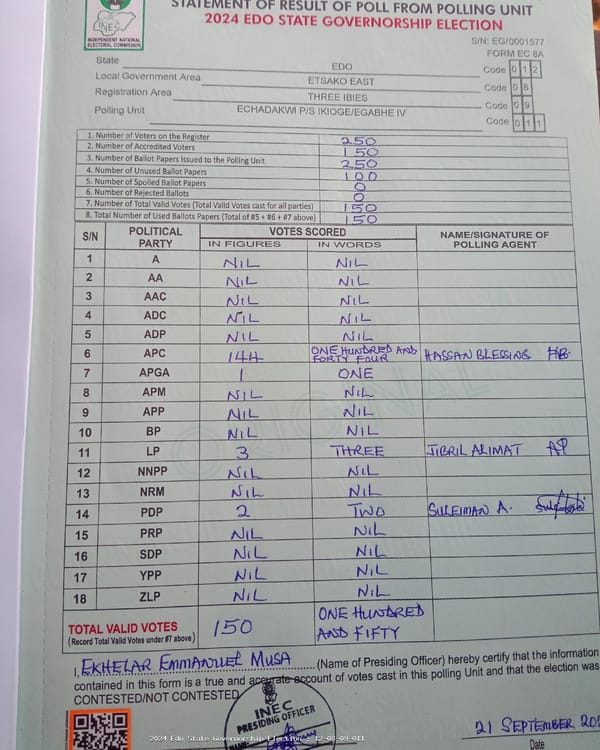 STATEMENT OF RESULT OF POLL FROM POLLING UNIT
2024 EDO STATE GOVERNORSHIP ELECTION
INEC
INDEPENDENT NATIONAL
ELECTORAL COMMISSION
S/N: EG/0001577
FORM EC 8A
State EDO Code 0 1 2
Local Government Area ETSAKO EAST Code 0 8
Registration Area THREE IBIES Code 0 9
Polling Unit ECHADAKWI P/S IKIOGE/EGABHE IV Code 0 1 1
1. Number of Voters on the Register 250
2. Number of Accredited Voters 150
3. Number of Ballot Papers Issued to the Polling Unit 250
4. Number of Unused Ballot Papers 100
5. Number of Spoiled Ballot Papers 0
6. Number of Rejected Ballots 0
7. Number of Total Valid Votes (Total Valid Votes cast for all parties) 150
8. Total Number of Used Ballots Papers (Total of #5 + #6 + #7 above) 150
S/N POLITICAL PARTY VOTES SCORED NAME/SIGNATURE OF POLLING AGENT
IN FIGURES IN WORDS
1 A NIL NIL
2 AA NIL NIL
3 AAC NIL NIL
4 ADC NIL NIL
5 ADP NIL NIL
6 APC 144 ONE HUNDRED AND FORTY FOUR HASSAN BLESSING HB
7 APGA 1 ONE
8 APM NIL NIL
9 APP NIL NIL
10 BP NIL NIL
11 LP 3 THREE JIBRIL ALIMAT
12 NNPP NIL NIL
13 NRM NIL NIL
14 PDP 2 TWO SULEIMAN A.
15 PRP NIL NIL
16 SDP NIL NIL
17 YPP NIL NIL
18 ZLP NIL NIL
ORIGINAL
TOTAL VALID VOTES 150 ONE HUNDRED AND FIFTY
(Record Total Valid Votes under #7 above)
I, EKHELAR EMMANUEL MUSA (Name of Presiding Officer) hereby certify that the information
contained in this form is a true and accurate account of votes cast in this polling Unit and that the election was
CONTESTED/NOT CONTESTED
INEC
PRESIDING OFFICER
21 SEPTEMBER 202
Date
2024 Edo State Governorship Election - 12-08-09-011